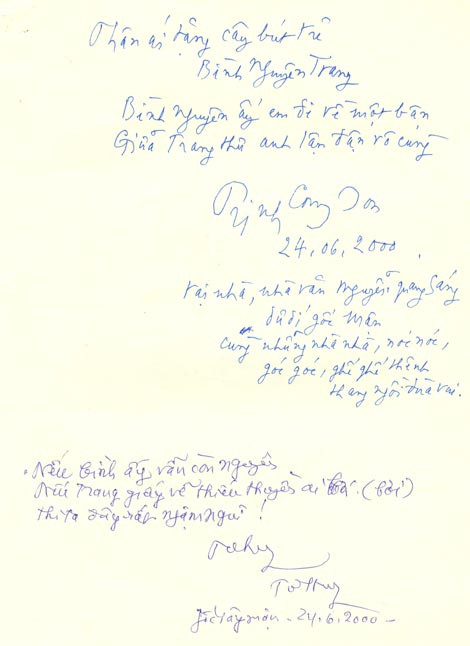 Thân ái tặng cây bút trẻ
Bình Nguyên Trang
Bình nguyên ấy em đi về một bận
Giữa Trang thơ anh lận đận vô cùng
Trịnh Công Sơn
24.06.2000.
tại nhà, nhà văn Nguyễn quang Sáng
gốc mận
cùng những nhà nhà, nóc nóc,
góc góc, ghế ghế thênh
thang ngồi đưa vai.
Nếu bình ấy vẫn còn nguyên
Nếu trang giấy vẽ thiền thuyền ai (bơi)
thì ta ngậm ngùi!
Tô Huy
- 24.6.2000 -